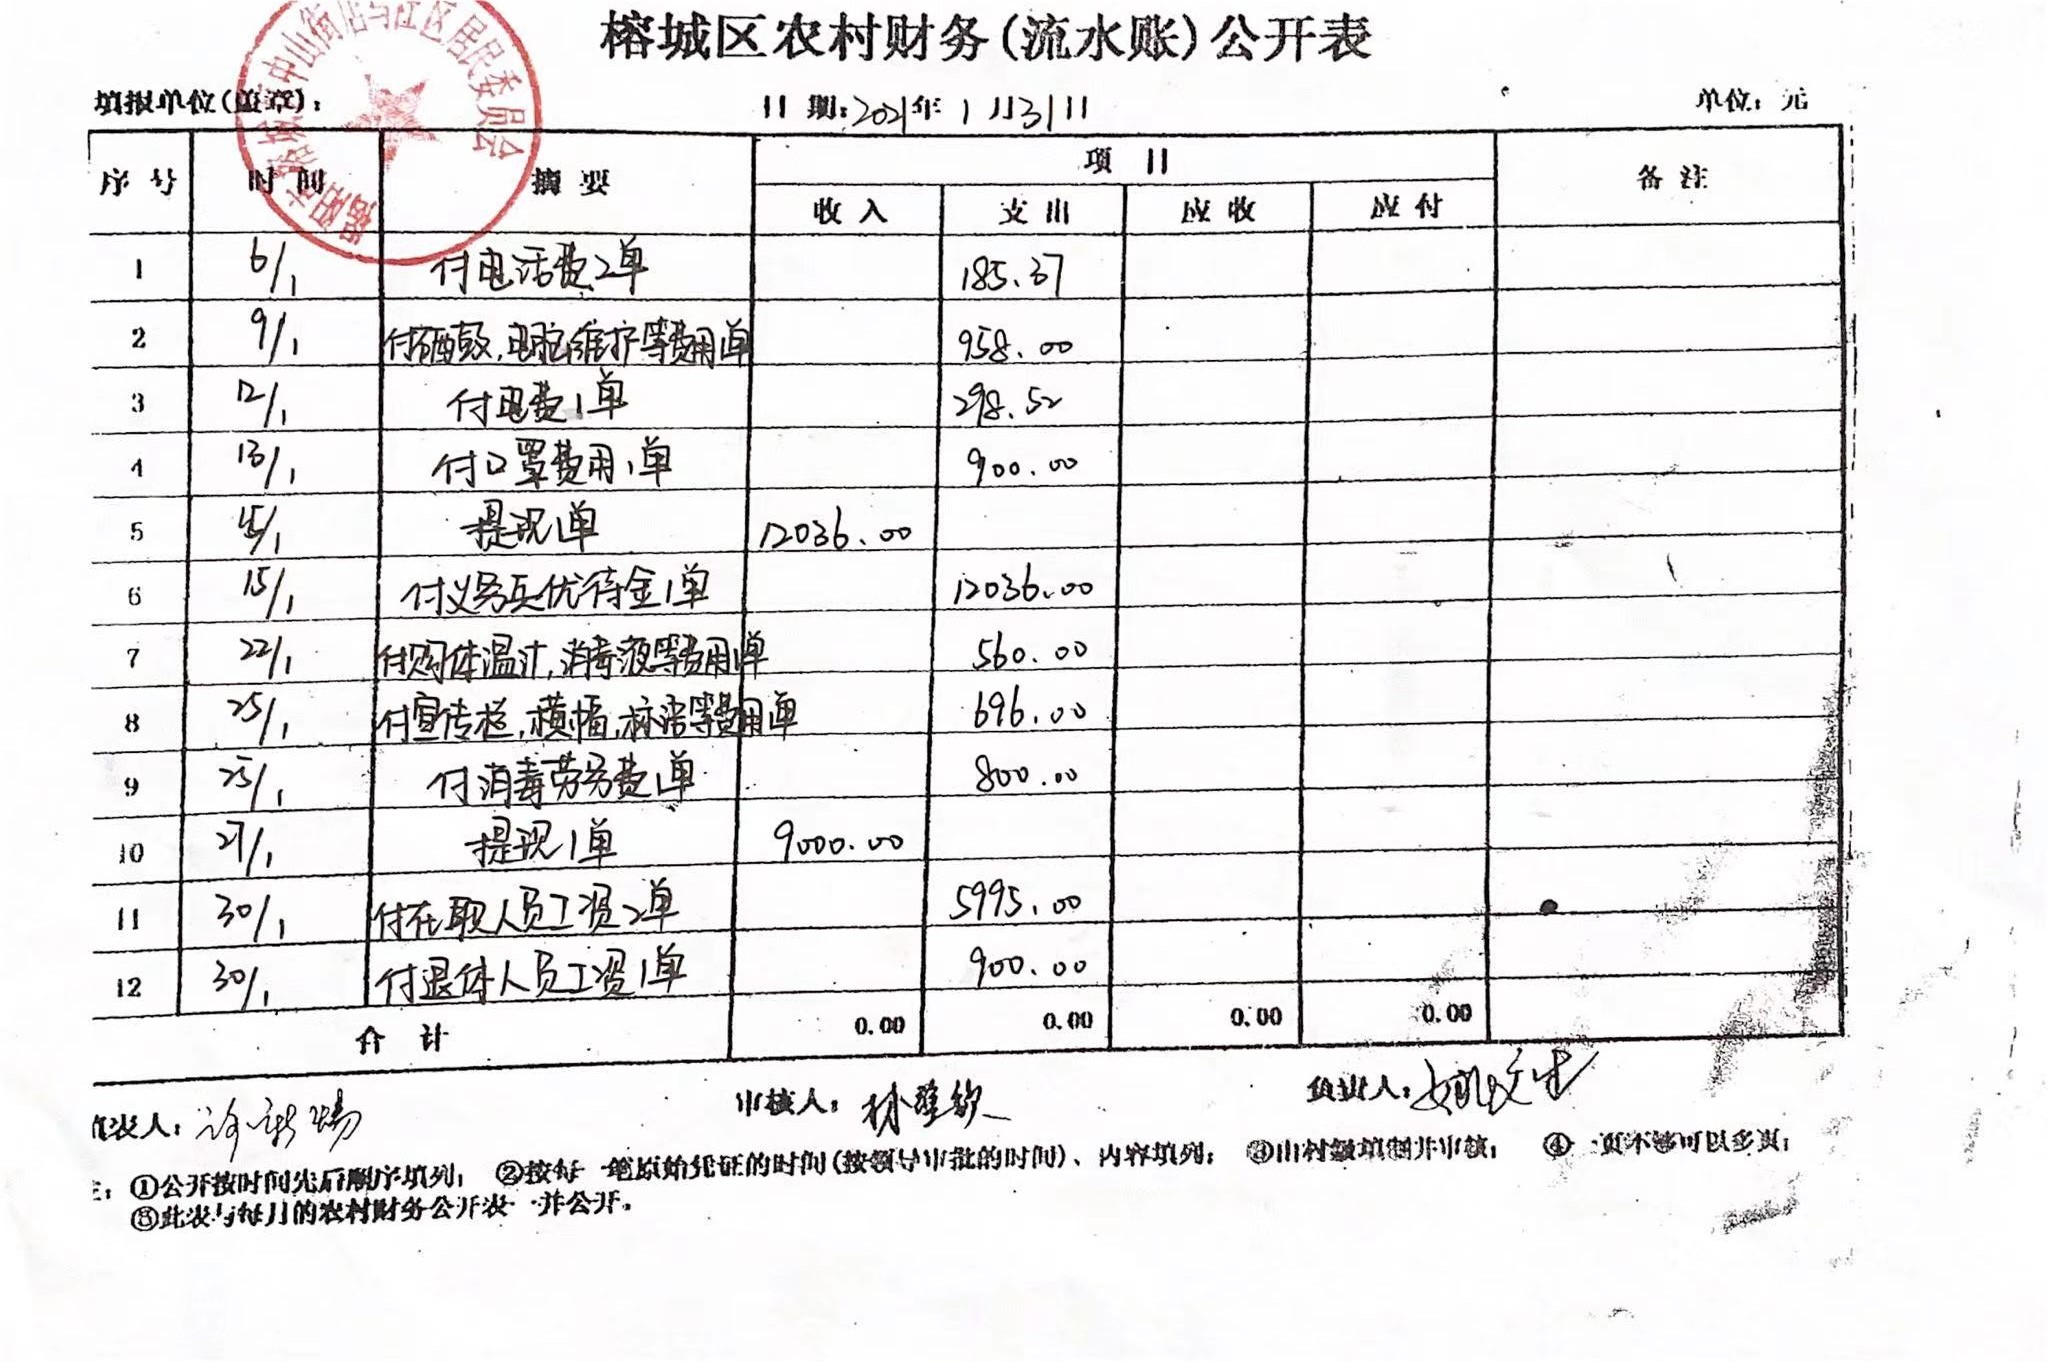 榕城区农村财务(流水账)公开表
填报单位(盖章): 日期:2021年1月31日 单位: 元
中山街店马江区居民委员会
序号 时间 摘要 项目 备注
收入 支出 应收 应付
1 6/1 付电话费2单 185.37
2 9/1 付硒鼓,电脑维护等费用1单 958.00
3 12/1 付电费1单 298.52
4 13/1 付口罩费用1单 900.00
5 15/1 提现1单 12036.00
6 15/1 付义务兵优待金1单 12036.00
7 22/1 付购体温计,消毒液等费用1单 560.00
8 25/1 付宣传栏,横幅,标语等费用1单 696.00
9 25/1 付消毒劳务费1单 800.00
10 27/1 提现1单 9000.00
11 30/1 付在职人员工资2单 5995.00
12 30/1 付退休人员工资1单 900.00
合计 0.00 0.00 0.00 0.00
填表人: 审核人: 负责人:
注: ①公开按时间先后顺序填列; ②按每一笔原始凭证的时间(按领导审批的时间)、内容填列; ③由村级填制并审核; ④一页不够可以多页;
⑤此表与每月的农村财务公开表一并公开。